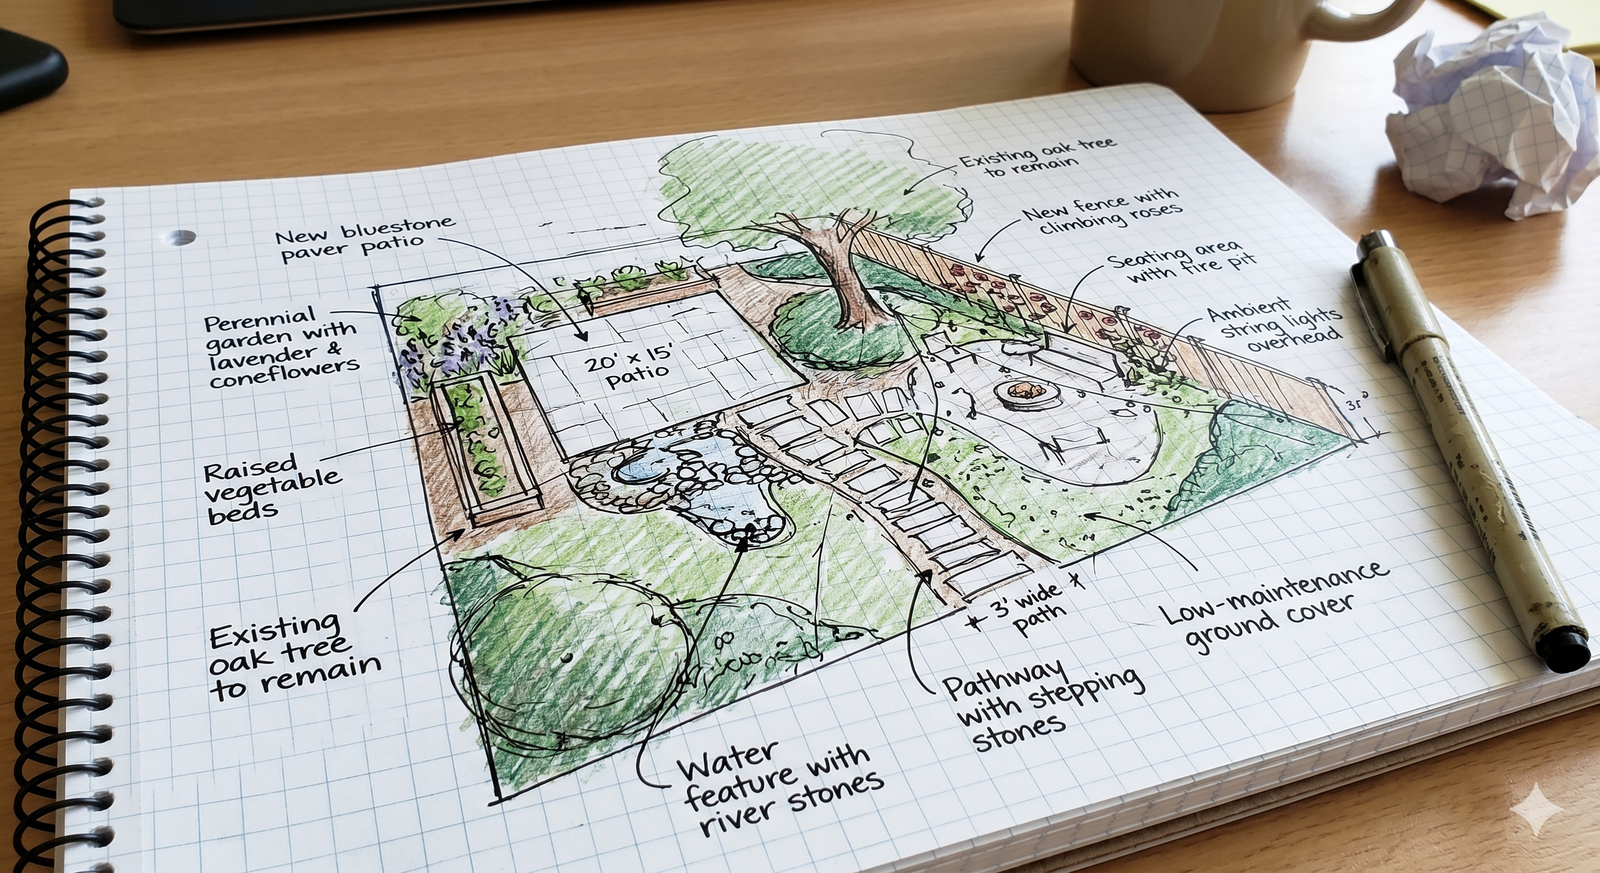 Existing oak tree
to remain
New fence with
climbing roses
New bluestone
paver patio
Seating area
with fire pit
Perennial
garden with
lavender &
coneflowers
Ambient
string lights
overhead
20' x 15'
patio
Raised
vegetable
beds
Existing
oak tree
to remain
3' wide
path
Low-maintenance
ground cover
Pathway
with stepping
stones
Water
feature with
river stones